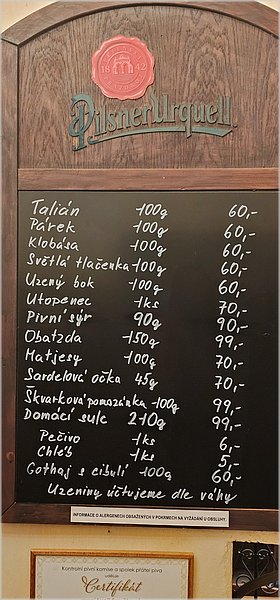 18 42
Pilsner Urquell
Talián 100g 60,-
Párek 100g 60,-
Klobása 100g 60,-
Světlá tlačenka 100g 60,-
Uzený bok 100g 60,-
Utopenec 1ks 70,-
Pivní sýr 90g 90,-
Obatzda 150g 99,-
Matjesy 100g 70,-
Sardelová očka 45g 70,-
Škvarková pomazánka 100g 99,-
Domácí sulc 210g 99,-
Pečivo 1ks 6,-
Chléb 1ks 5,-
Gothaj s cibulí 100g 60,-
Uzeniny účtujeme dle váhy
INFORMACE O ALERGENECH OBSAŽENÝCH V POKRMECH NA VYŽÁDÁNÍ U OBSLUHY.
Kontrolní pivní komise a spolek přátel piva
uděluje
Certifikát